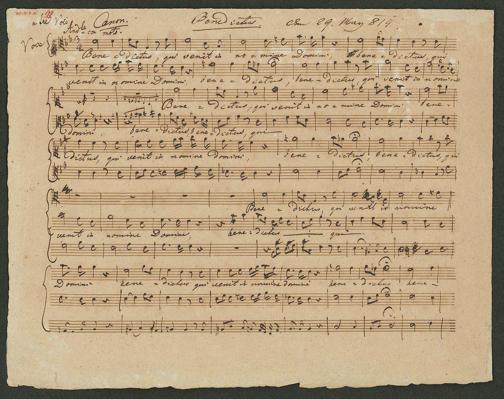 Canon. Benedictus
Voce
Bene-dictus, qui venit in nomine Domini Benedictus
venit in nomine Domini, bene-dictus, bene-dictus, qui venit in nomine
Bene-dictus, qui venit in nomine Domini bene-
Domini, bene-dictus, benedictus, qui
dictus, qui venit in nomine Domini, bene-dictus, bene-dictus, qui
Bene-dictus, qui venit in nomine
venit in nomine Domine, bene-dictus qui
Domini bene-dictus qui venit in nomine domini bene-dictus bene-